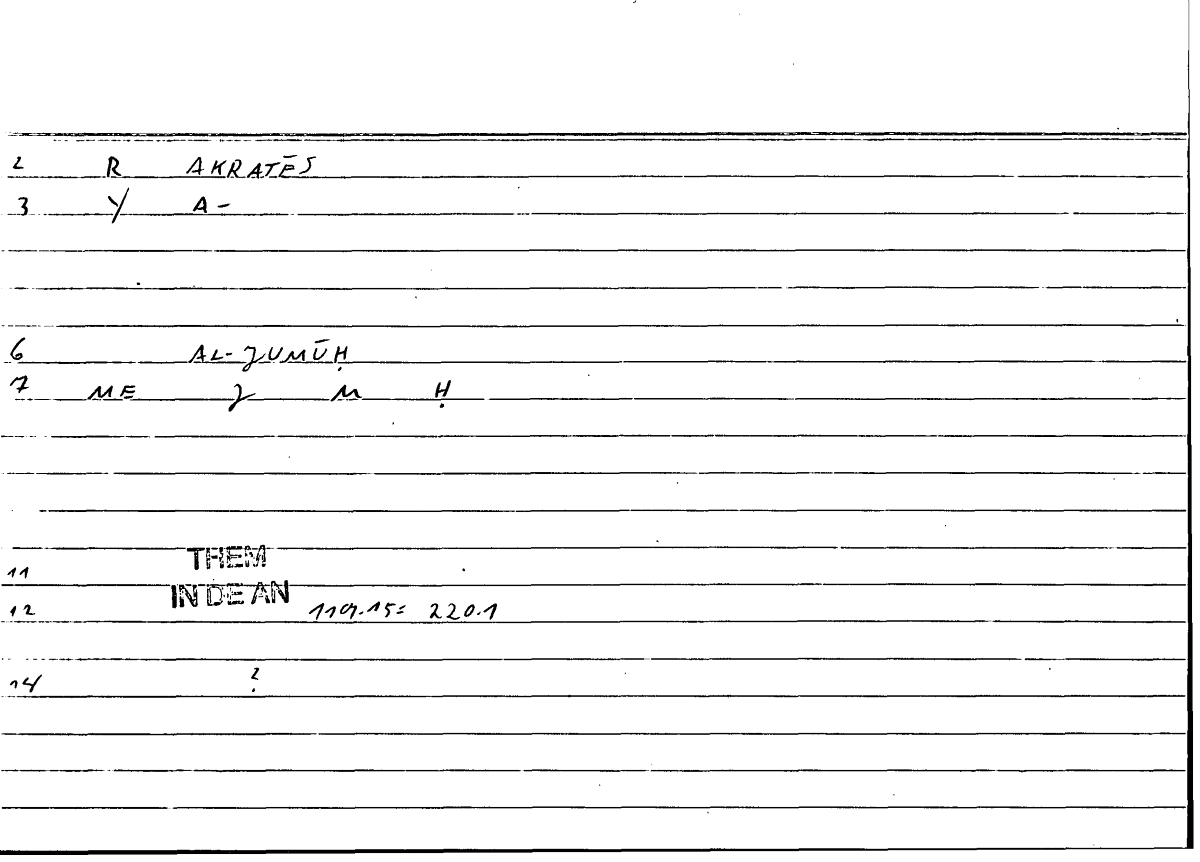 2 R AKRATĒS
3 Y A-
6 AL-JUMŪḤ
7 ME J M Ḥ
11 THEM
12 IN DE AN 119.15= 220.1
14 ?